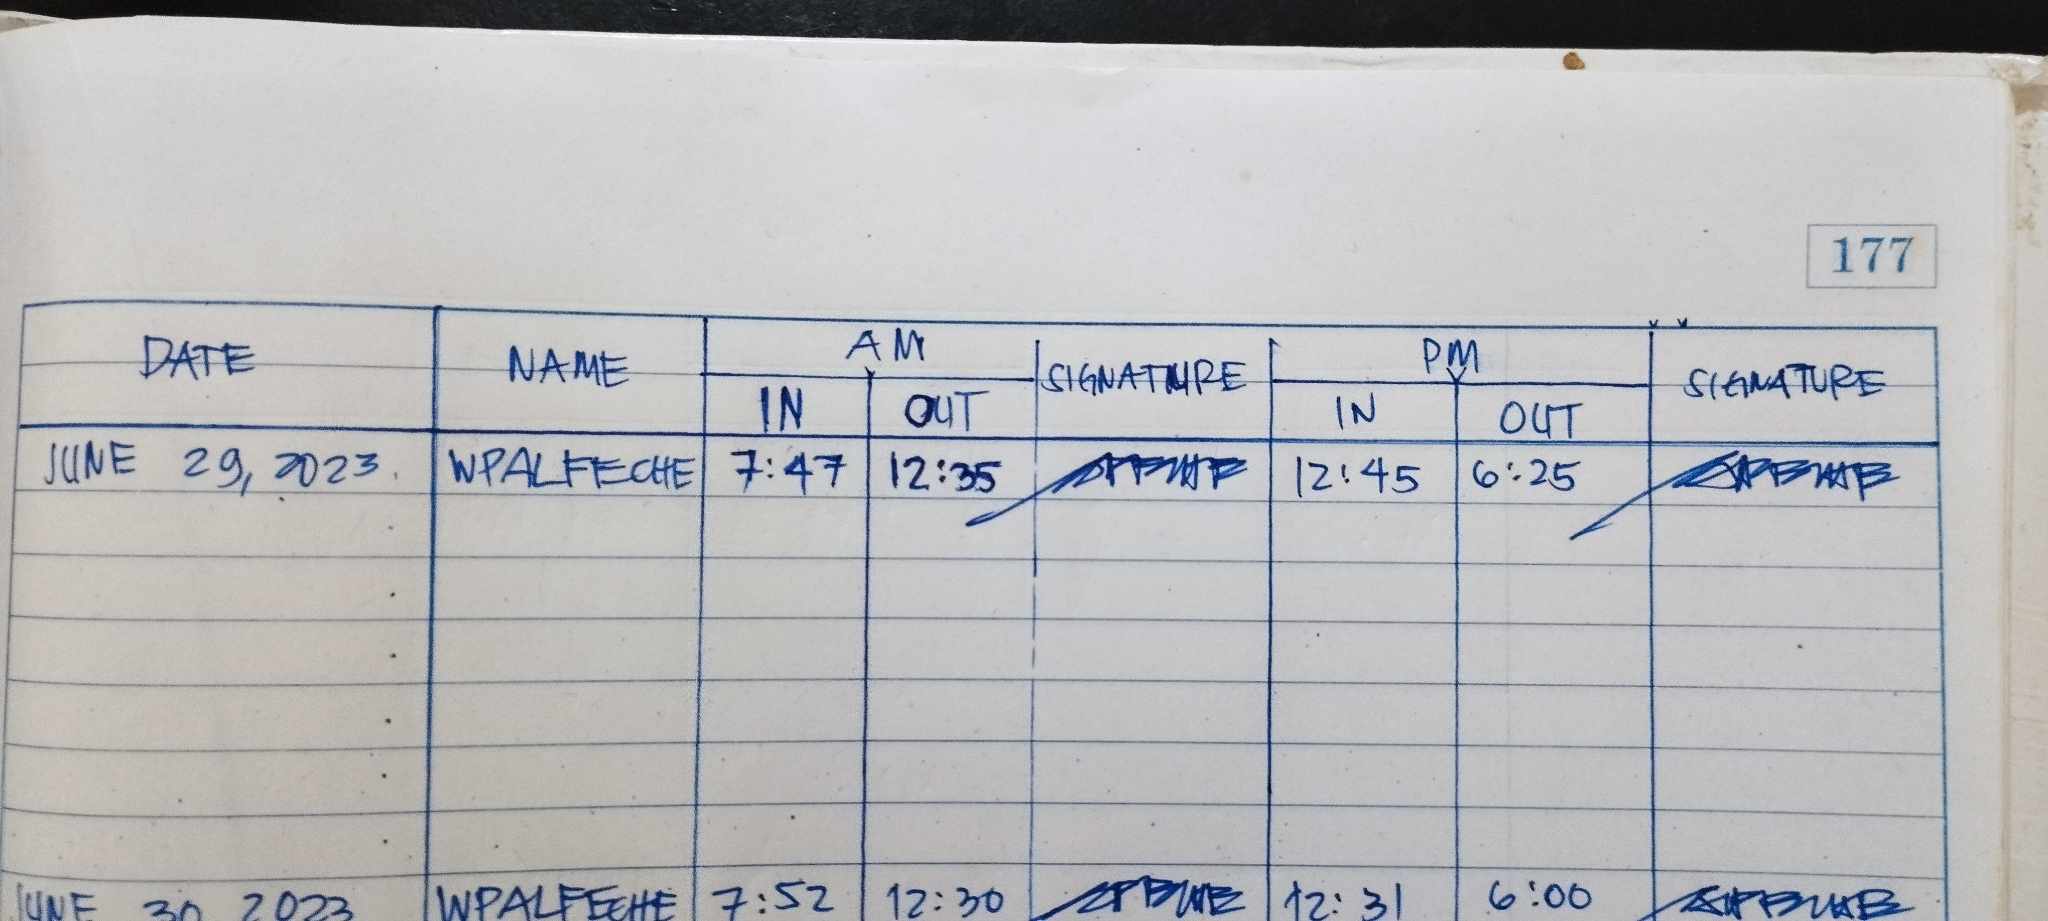 177
DATE NAME AM SIGNATURE PM SIGNATURE
IN OUT IN OUT
JUNE 29, 2023. WPALFECHE 7:47 12:35 12:45 6:25
JUNE 30 2023 WPALFECHE 7:52 12:30 12:31 6:00